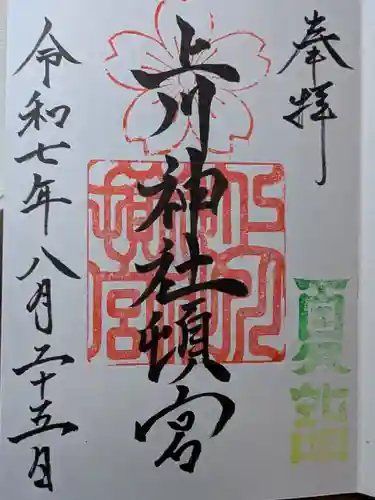 奉拝
上川神社頓宮
令和七年八月二十五日